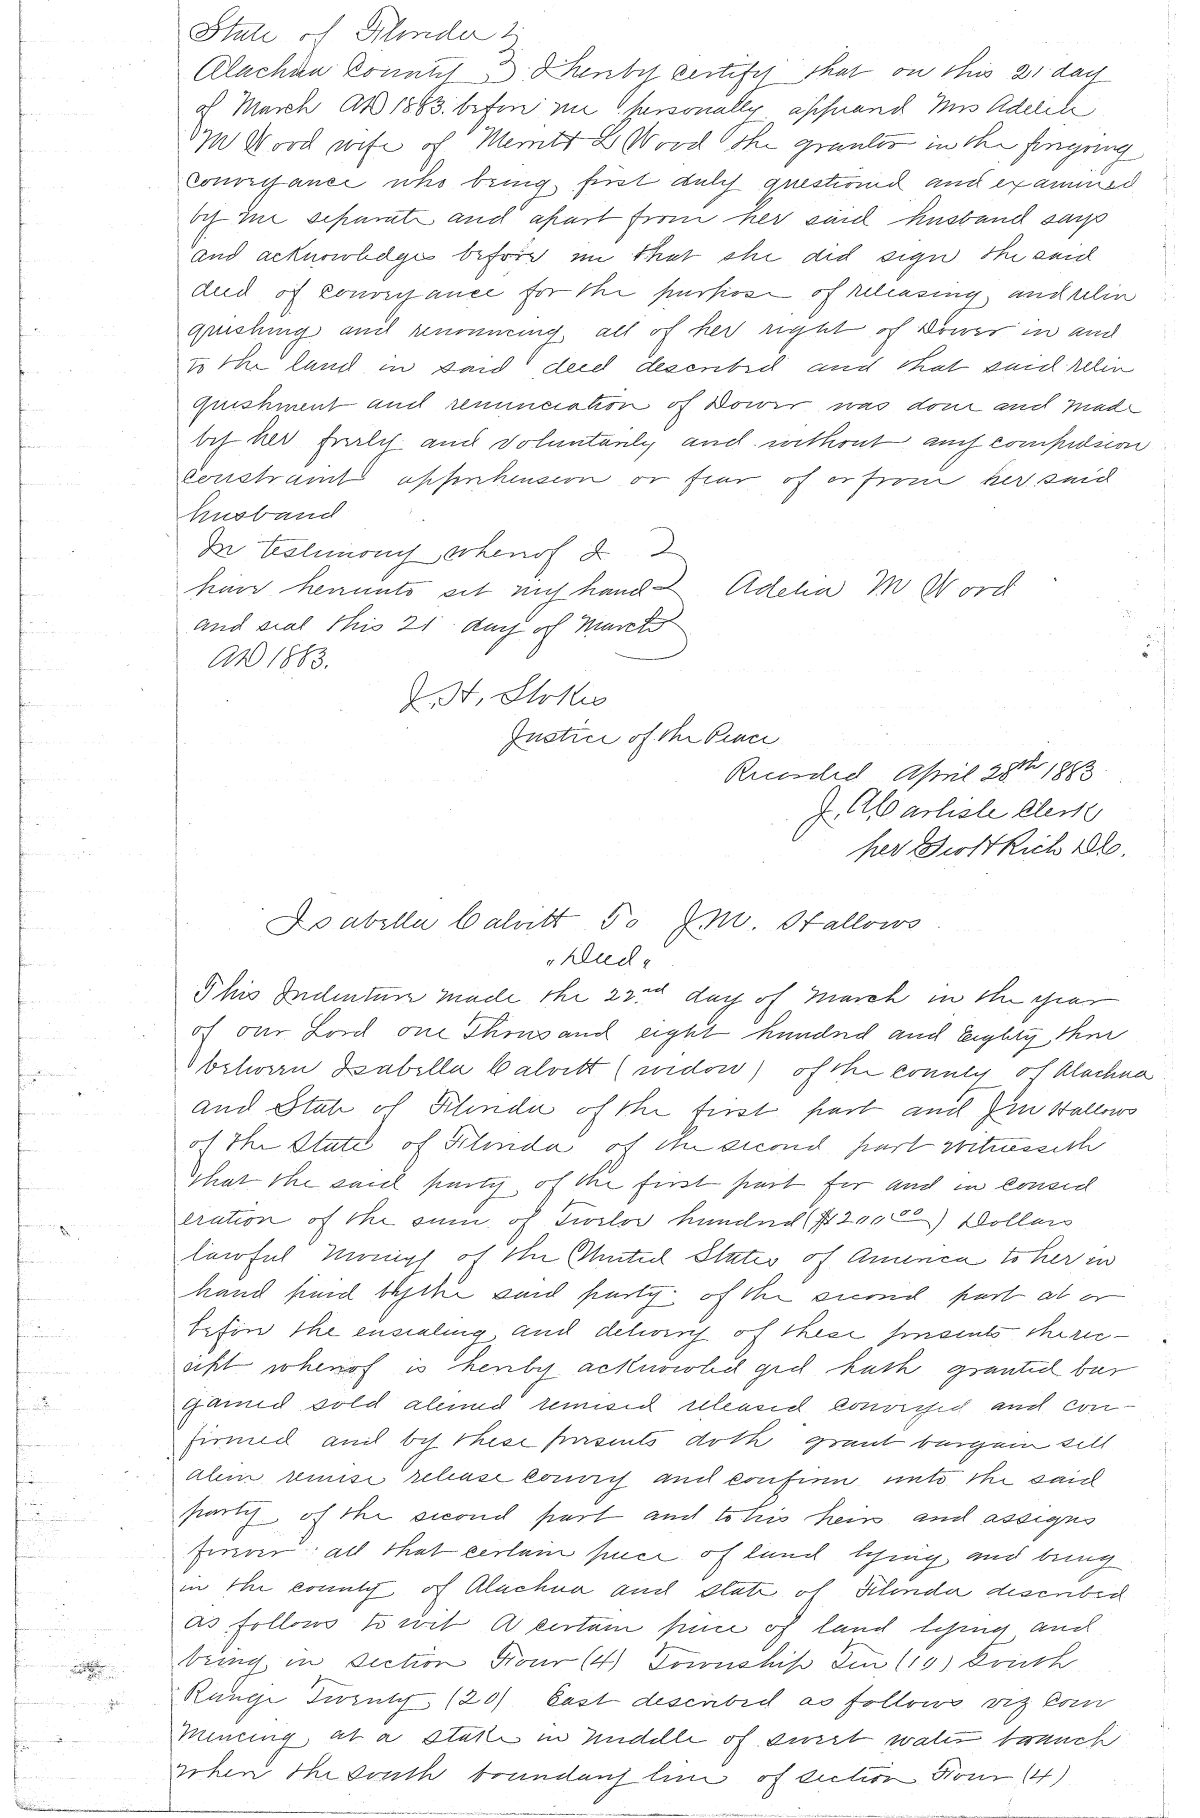 State of Florida }
Alachua County } I hereby certify that on this 21 day
of March AD 1883. before me personally appeared Mrs Adelia
M Word wife of Merritt L Word the grantor in the foregoing
conveyance who being first duly questioned and examined
by me separate and apart from her said husband says
and acknowledges before me that she did sign the said
deed of conveyance for the purpose of releasing and relin
quishing and renouncing all of her right of Dower in and
to the land in said deed described and that said relin
quishment and renunciation of Dower was done and made
by her freely and voluntarily and without any compulsion
constraint apprehension or fear of or from her said
husband
In testimony whereof I }
have hereunto set my hand } Adelia M Word
and seal this 21 day of March }
AD 1883.
J. H. Stokes
Justice of the Peace
Recorded April 28th 1883.
J. A. Carlisle Clerk
per Scott Rich DC.
Isabella Calvitt To J.M. Hallows
"Deed"
This Indenture made the 22nd day of March in the year
of our Lord one Thousand eight hundred and Eighty three
between Isabella Calvitt (widow) of the county of Alachua
and State of Florida of the first part and J M Hallows
of the State of Florida of the second part witnesseth
that the said party of the first part for and in consid
eration of the sum of Twelve hundred ($1200 00) Dollars
lawful money of the United States of America to her in
hand paid by the said party of the second part at or
before the ensealing and delivery of these presents the rec-
eipt whereof is hereby acknowledged hath granted bar
gained sold aliened remised released conveyed and con-
firmed and by these presents doth grant bargain sell
alien remise release convey and confirm unto the said
party of the second part and to his heirs and assigns
forever all that certain piece of land lying and being
in the county of Alachua and state of Florida described
as follows to wit A certain piece of land lying and
being in section Four (4) Township Ten (10) South
Range Twenty (20) East described as follows viz Com
mencing at a stake in middle of sweet water branch
where the south boundary line of section Four (4)